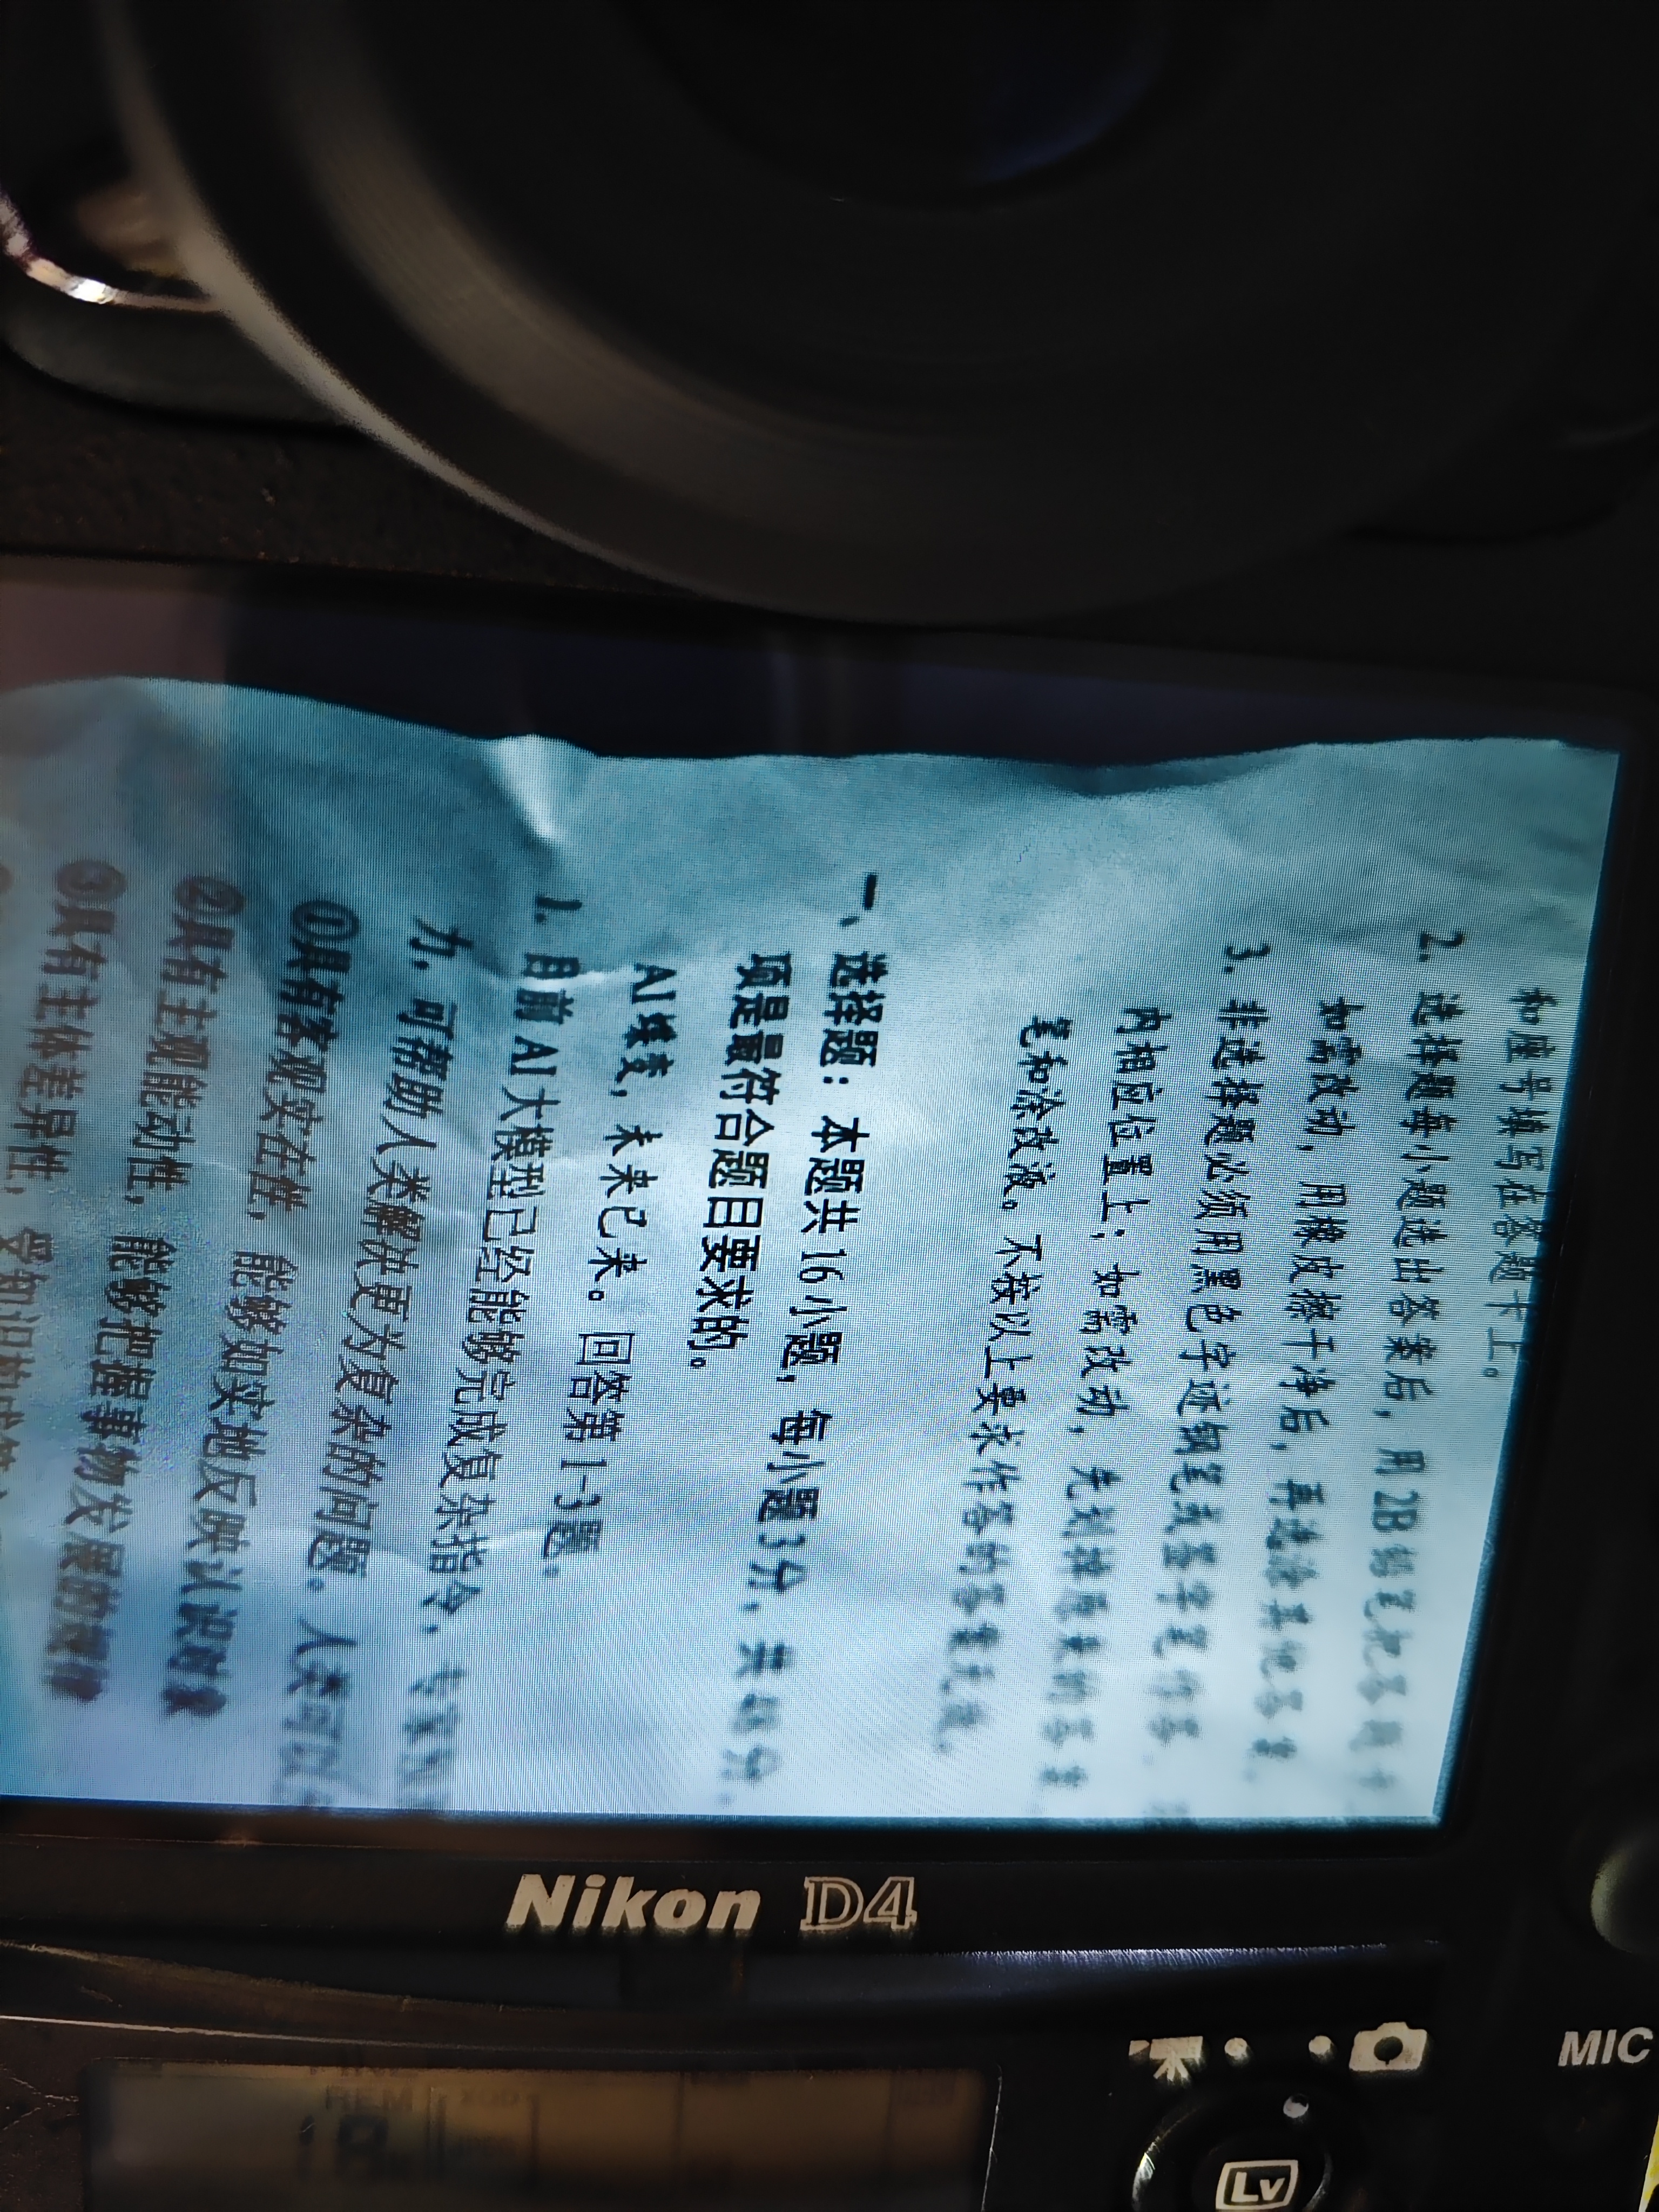 和座号填写在答题卡上。
2. 选择题每小题选出答案后，用2B铅笔把答题卡
如需改动，用橡皮擦干净后，再选涂其他答案
3. 非选择题必须用黑色字迹钢笔或签字笔作答
内相应位置上；如需改动，先划掉原来的答案
笔和涂改液。不按以上要求作答的答案无效。
一、选择题：本题共16小题，每小题3分，共48分。
项是最符合题目要求的。
AI蝶变，未来已来。回答第1-3题。
1. 目前AI大模型已经能够完成复杂指令，专家
力，可帮助人类解决更为复杂的问题。人类可以
①具有客观实在性，能够如实地反映认识对象
②具有主观能动性，能够把握事物发展的规律
③具有主体差异性，受知识构成
Nikon D4
MIC
REM
Lv